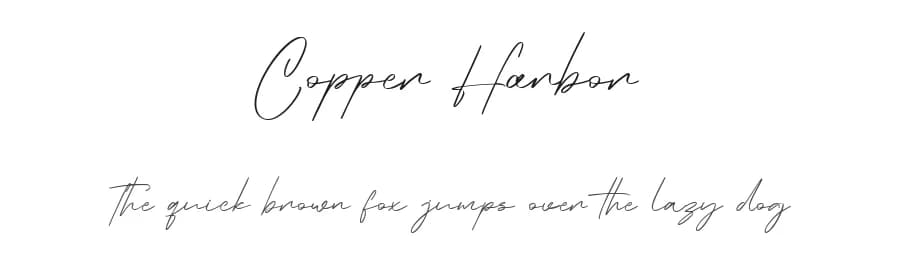 Copper Harbor
The quick brown fox jumps over the lazy dog